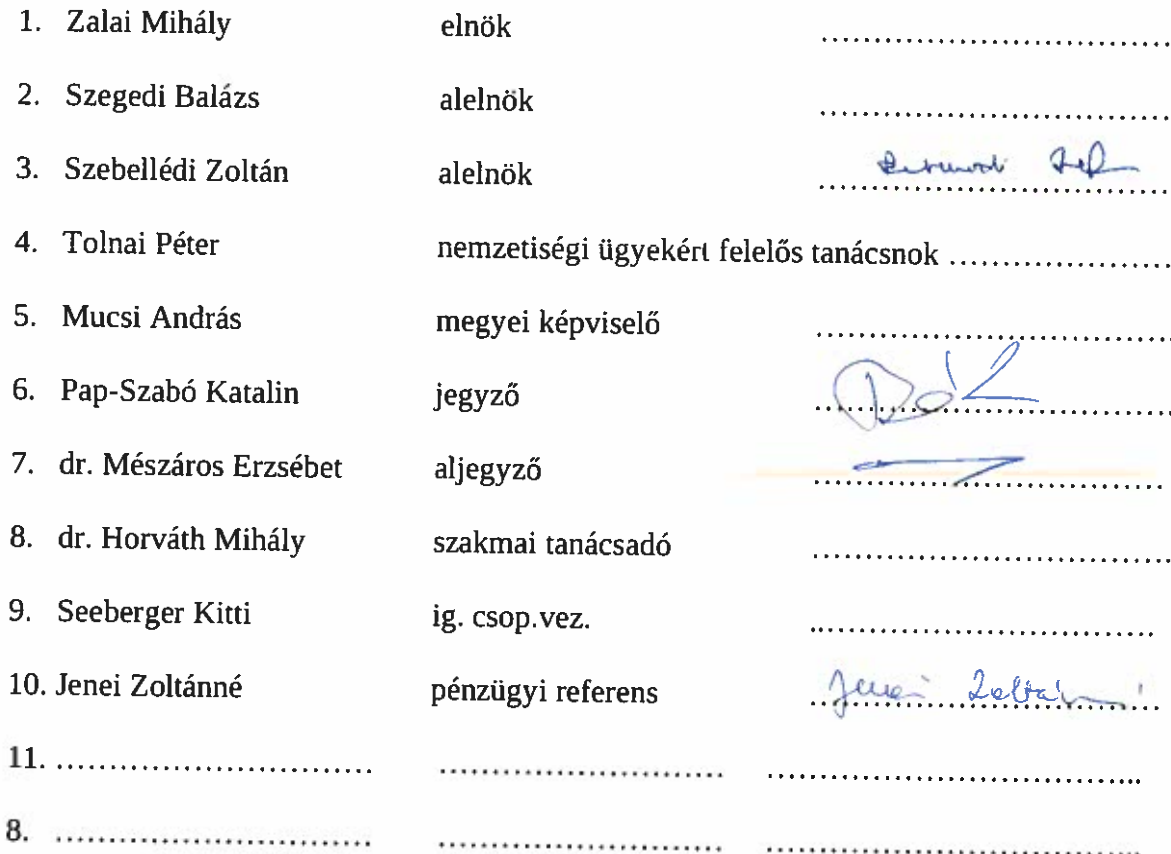 1. Zalai Mihály elnök ..............................
2. Szegedi Balázs alelnök ..............................
3. Szebellédi Zoltán alelnök ..............................
4. Tolnai Péter nemzetiségi ügyekért felelős tanácsnok ....................
5. Mucsi András megyei képviselő ..............................
6. Pap-Szabó Katalin jegyző ..............................
7. dr. Mészáros Erzsébet aljegyző ..............................
8. dr. Horváth Mihály szakmai tanácsadó ..............................
9. Seeberger Kitti ig. csop.vez. ..............................
10. Jenei Zoltánné pénzügyi referens Jenei
11. ........................... ........................ ................................
8. ........................... ........................ ................................